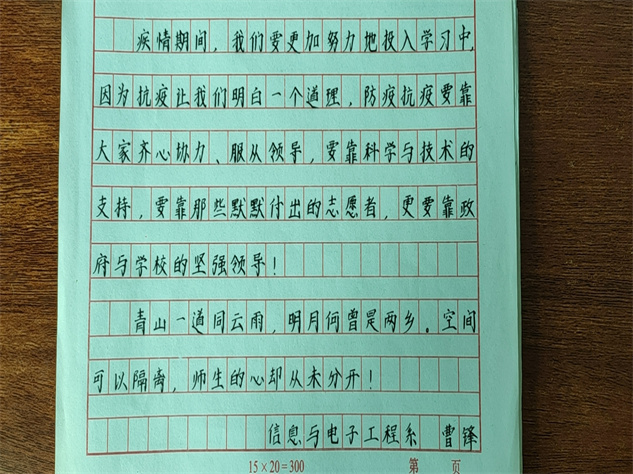 疾情期间，我们要更加努力地投入学习中，
因为抗疫让我们明白一个道理，防疫抗疫要靠
大家齐心协力、服从领导，要靠科学与技术的
支持，要靠那些默默付出的志愿者，更要靠政
府与学校的坚强领导！
青山一道同云雨，明月何曾是两乡。空间
可以隔离，师生的心却从未分开！
信息与电子工程系 曹锋
15×20=300 第 页